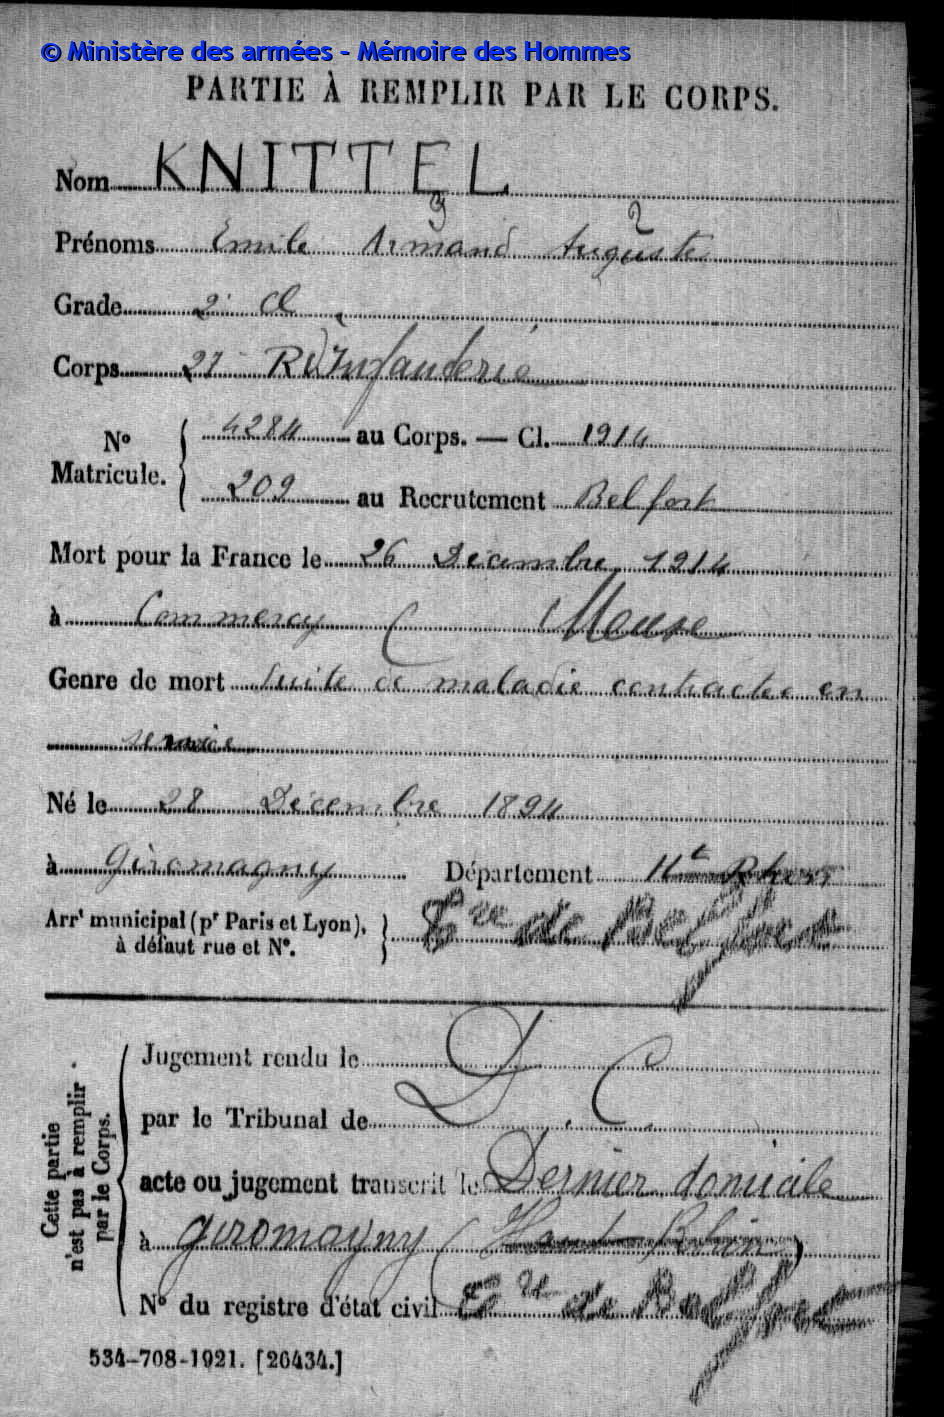 © Ministère des armées - Mémoire des Hommes
PARTIE À REMPLIR PAR LE CORPS.
Nom KNITTEL
3 2
Prénoms Emile Armand Auguste
Grade 2e Cl.
Corps 21 R d'Infanterie
No Matricule. { 4284 au Corps. — Cl. 1914
209 au Recrutement Belfort
Mort pour la France le 26 Décembre 1914
à Commercy (Meuse
Genre de mort suite de maladie contractée en
service
Né le 28 Décembre 1894
à Giromagny Département Ht Rhin
Arrt municipal (pr Paris et Lyon), à défaut rue et No. } Tre de Belfort
Cette partie n'est pas à remplir par le Corps.
Jugement rendu le D.C.
par le Tribunal de
acte ou jugement transcrit le Dernier domicile
à Giromagny (Haut Rhin)
No du registre d'état civil Tre de Belfort
534-708-1921. [26434.]